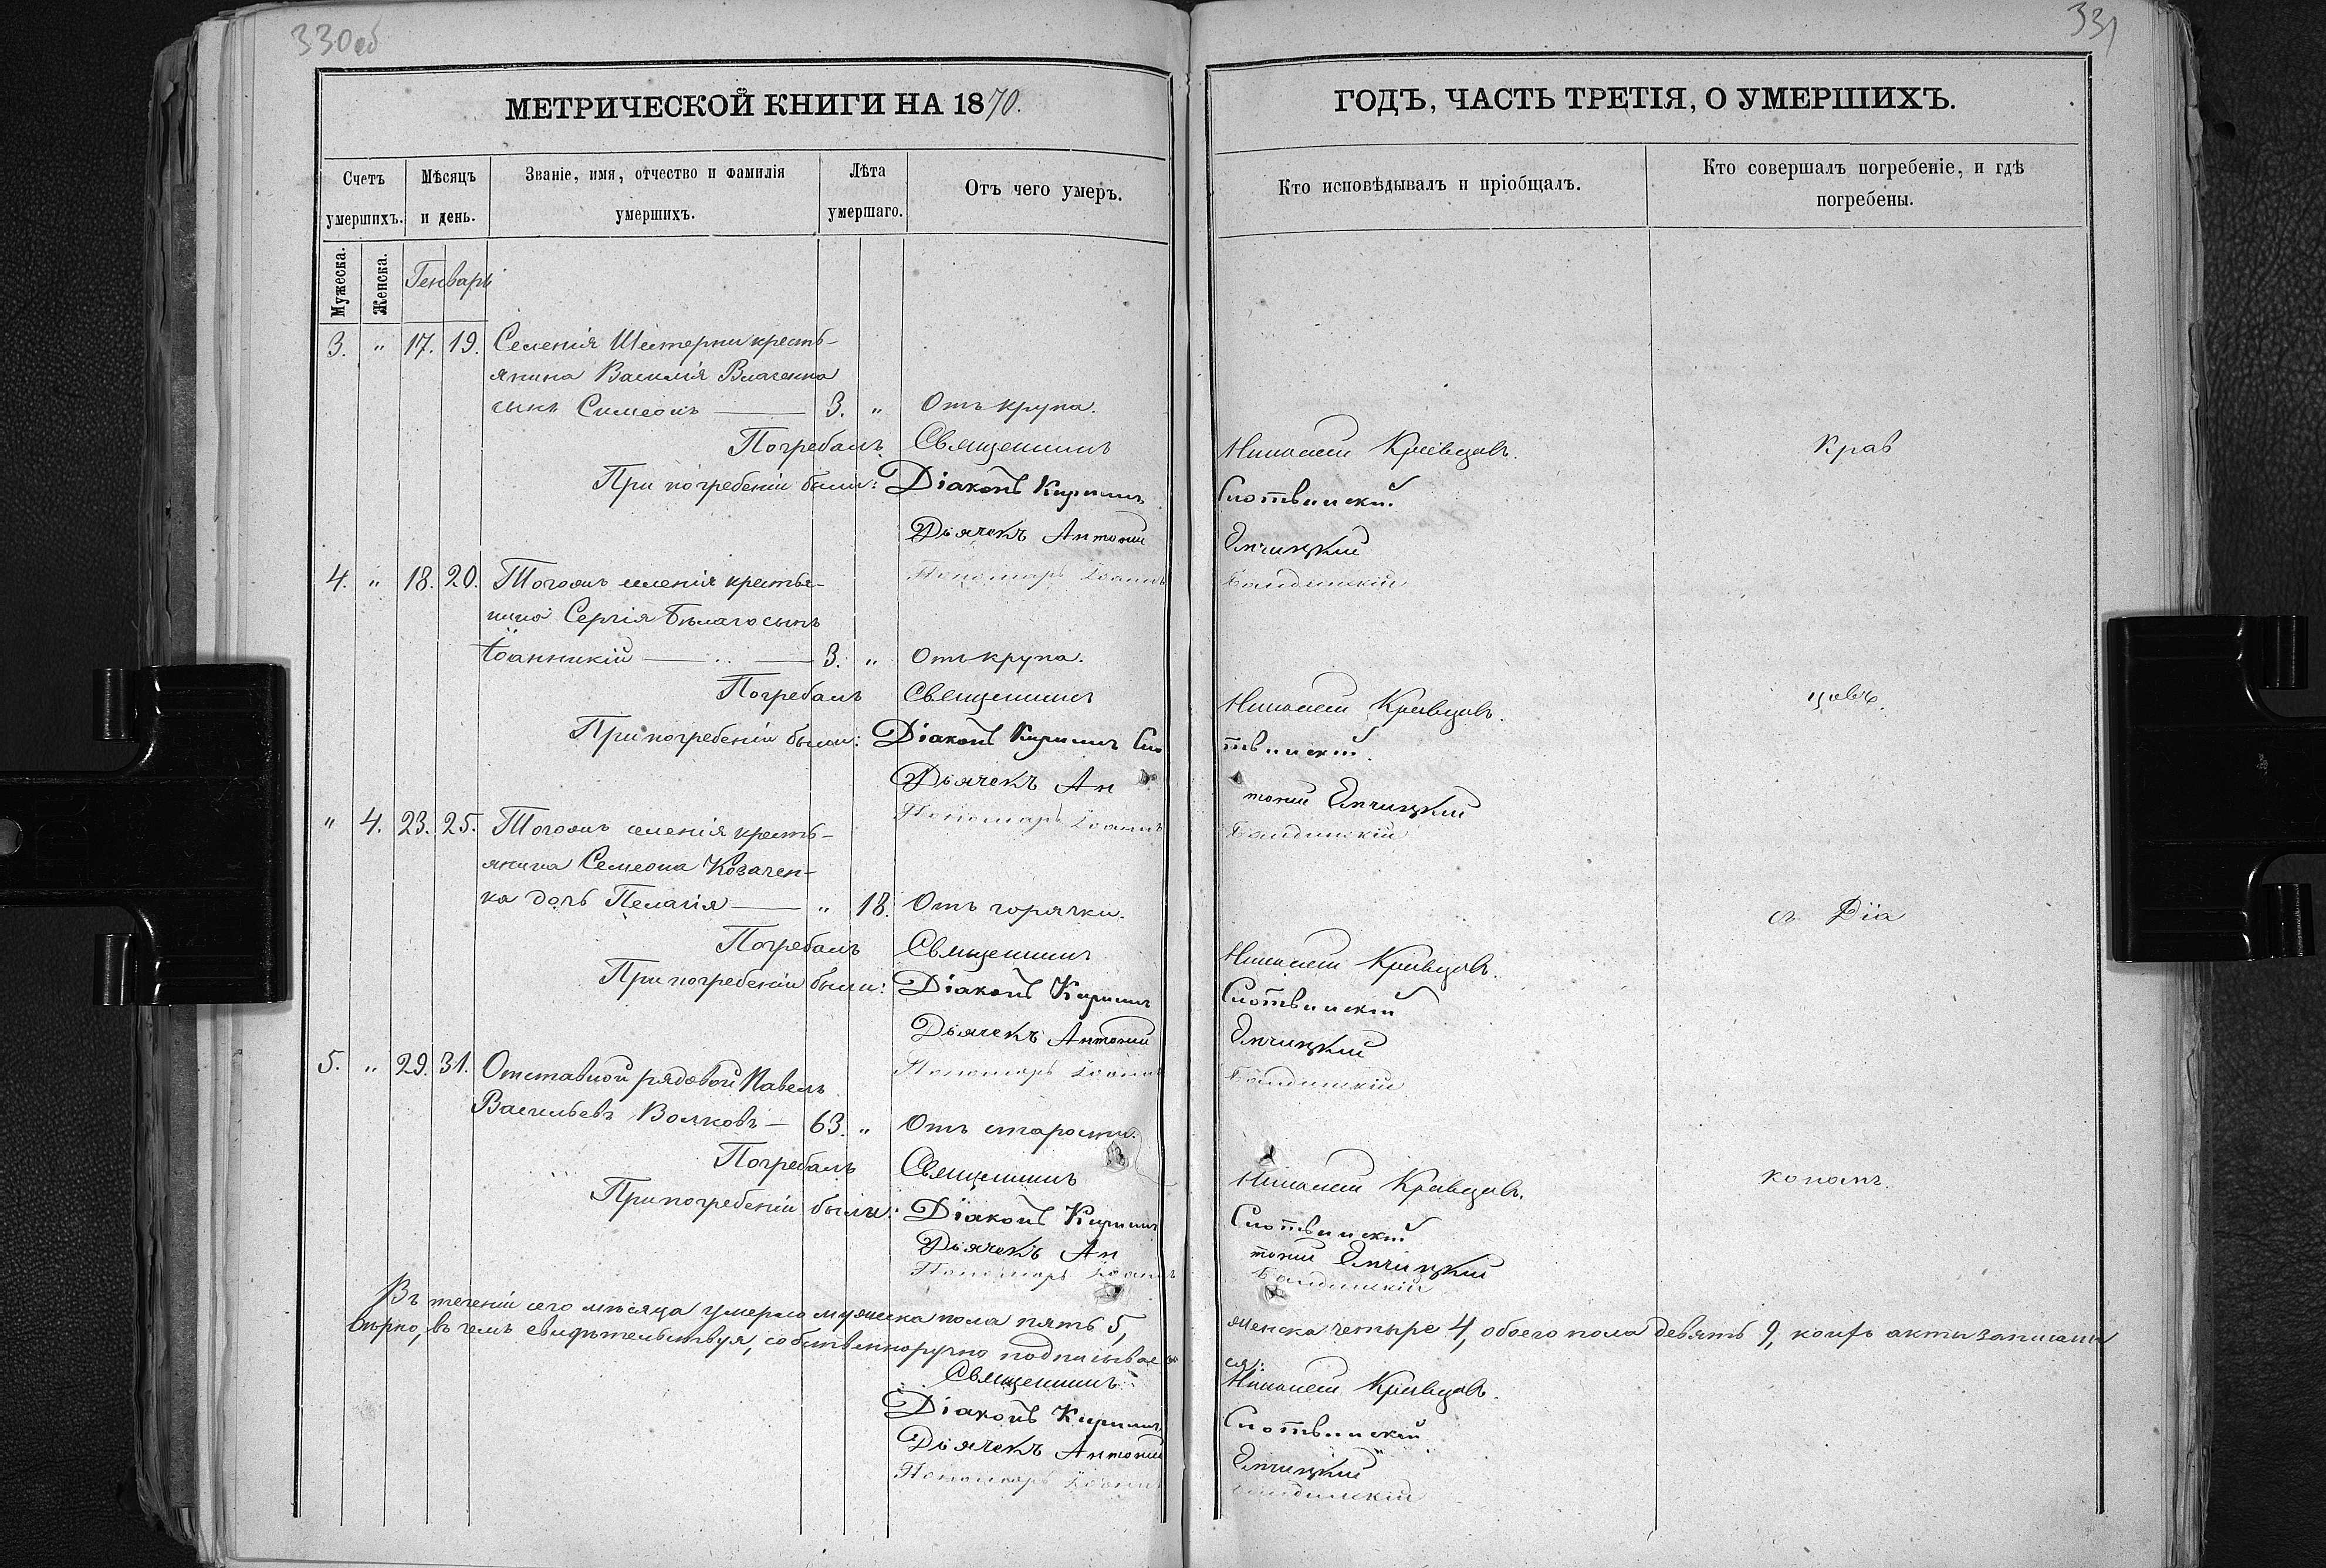 330об
331
МЕТРИЧЕСКОЙ КНИГИ НА 1870.
ГОДЪ, ЧАСТЬ ТРЕТІЯ, О УМЕРШИХЪ.
Счетъ умершихъ.
Мѣсяцъ и день.
Званіе, имя, отчество и фамилія умершихъ.
Лѣта умершаго.
Отъ чего умеръ.
Кто исповѣдывалъ и пріобщалъ.
Кто совершалъ погребеніе, и гдѣ погребены.
Мужеска.
Женска.
Генварь
3. " 17. 19. Селенія Шестерни кресть-
янина Василія Власенка
сынъ Симеонъ — 3. " Отъ крупа.
Погребалъ Священникъ Николай Кривцовъ. Крав
При погребеніи были: Діаконъ Кириллъ Слотвинскій.
Дьячекъ Антоній Ёлчицкій
4. " 18. 20. Тогожъ селенія крестья- Пономарь Іоаннъ
нина Сергія Бѣлаго сынъ
Іоанникій — 3. " Отъ крупа.
Погребалъ Священникъ Николай Кривцовъ. цовъ.
При погребеніи были: Діаконъ Кириллъ Слотвинскій.
Дьячекъ Антоній
" 4. 23. 25. Тогожъ селенія кресть- Пономарь Іоаннъ
янина Семеона Козачен-
ка дочь Пелагія — " 18. Отъ горячки. съ Діа
Погребалъ Священникъ Николай Кривцовъ.
При погребеніи были: Діаконъ Кириллъ Слотвинскій
Дьячекъ Антоній
5. " 29. 31. Отставной рядовой Павелъ Пономарь Іоаннъ
Васильевъ Волковъ — 63. " Отъ старости.
Погребалъ Священникъ Николай Кривцовъ. кономъ.
При погребеніи были: Діаконъ Кириллъ Слотвинскій
Дьячекъ Антоній
Пономарь Іоаннъ
Въ теченіи сего мѣсяца умерло мужеска пола пять 5, женска четыре 4, обоего пола девять 9, коихъ акты записаны
вѣрно, въ чемъ свидѣтельствуя, собственноручно подписываемся:
Священникъ Николай Кривцовъ.
Діаконъ Кириллъ Слотвинскій
Дьячекъ Антоній
Пономарь Іоаннъ